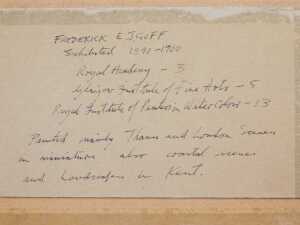 FREDERICK E J GOFF
Exhibited 1890-1900
Royal Academy - 3
Glasgow Institute of Fine Arts - 5
Royal Institute of Painters in Water Colors - 13
Painted mainly Thames and London Scenes
in miniature also coastal scenes
and Landscapes in Kent.